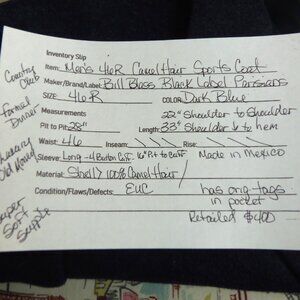 Inventory Slip
Item: Men's 46R Camel Hair Sports Coat
Maker/Brand/Label: Bill Blass Black Label Parisians
SIZE: 46R COLOR: Dark Blue
Measurements 22" Shoulder to Shoulder
Pit to Pit: 28" Length: 33" Shoulder to hem
Waist: 46 Inseam: Rise:
Sleeve Long - 4 Button Cuff. 16" Pit to Cuff Made in Mexico
Material: Shell) 100% Camel Hair
Condition/Flaws/Defects: EUC has orig tags
in pocket
Retailed $400
Country
Club
Formal
Dinner
Luxury
Old Money
Super
Soft
Supple